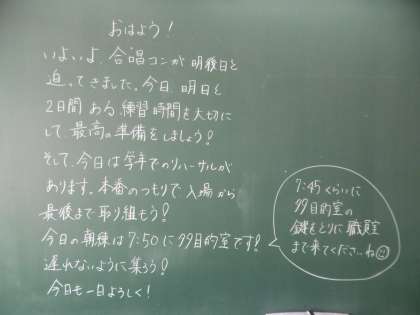 おはよう！
いよいよ、合唱コンが明後日と
迫ってきました。今日、明日と
2日間ある練習時間を大切に
して、最高の準備をしましょう！
そして、今日は学年でのリハーサルが
あります。本番のつもりで入場から
最後まで取り組もう！
今日の朝練は7:50に多目的室です！
遅れないように集ろう！
今日も一日よろしく！
7:45くらいに
多目的室の
鍵をとりに職員室
まで来てくださいね